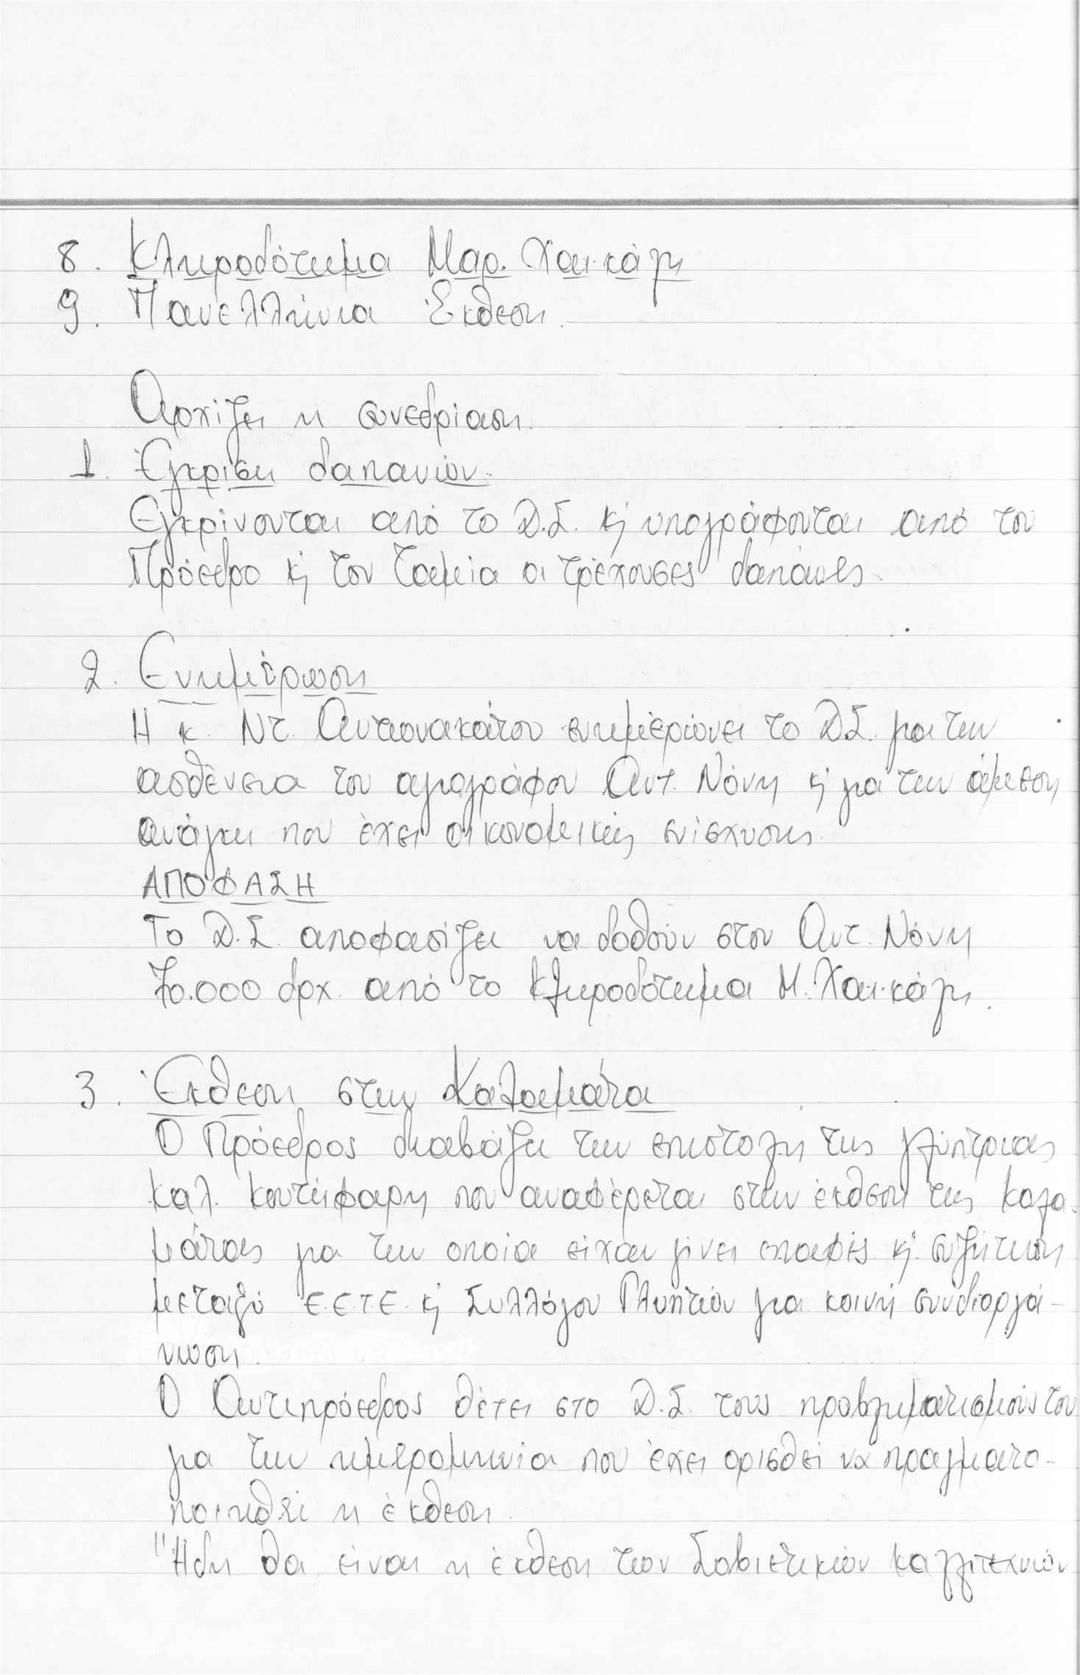 8. Κληροδότημα Μαρ. Χαι·κάλη
9. Πανελλήνια Έκθεση.
Αρχίζει η συνεδρίαση.
1. Έγκριση δαπανών.
Εγκρίνονται από το Δ.Σ. κ' υπογράφονται από τον
Πρόεδρο κ' τον Ταμία οι τρέχουσες δαπάνες.
2. Ενημέρωση
Η κ. Ντ. Αντωνακάτου ενημερώνει το Δ.Σ. για την
ασθένεια του αγιογράφου Αντ. Νόνη κ' για την άμεση
ανάγκη που έχει οικονομικής ενίσχυσης.
ΑΠΟΦΑΣΗ
Το Δ.Σ. αποφασίζει να δοθούν στον Αντ. Νόνη
70.000 δρχ. από το Κληροδότημα Μ. Χαι·κάλη.
3. Έκθεση στην Καλαμάτα
Ο Πρόεδρος διαβάζει την επιστολή της γλύπτριας
Καλ. που αναφέρεται στην έκθεση της Καλα-
μάτας για την οποία είχαν γίνει επαφές κ' συζήτηση
μεταξύ Ε.Ε.Τ.Ε. κ' Συλλόγου Γλυπτών για κοινή συνδιοργά-
νωση.
Ο Αντιπρόεδρος θέτει στο Δ.Σ. τους προβληματισμούς του
για την ημερομηνία που έχει ορισθεί να πραγματο-
ποιηθεί η έκθεση.
"Ήδη θα είναι η έκθεση των Σοβιετικών καλλιτεχνών